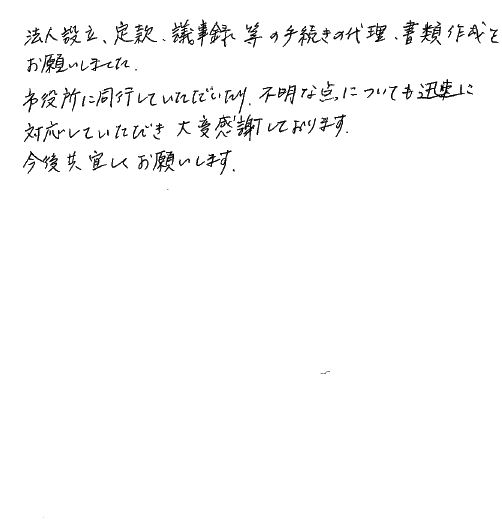 法人設立、定款、議事録等の手続きの代理、書類作成を
お願いしました。
市役所に同行していただいたり、不明な点についても迅速に
対応していただき大変感謝しております。
今後共宜しくお願いします。